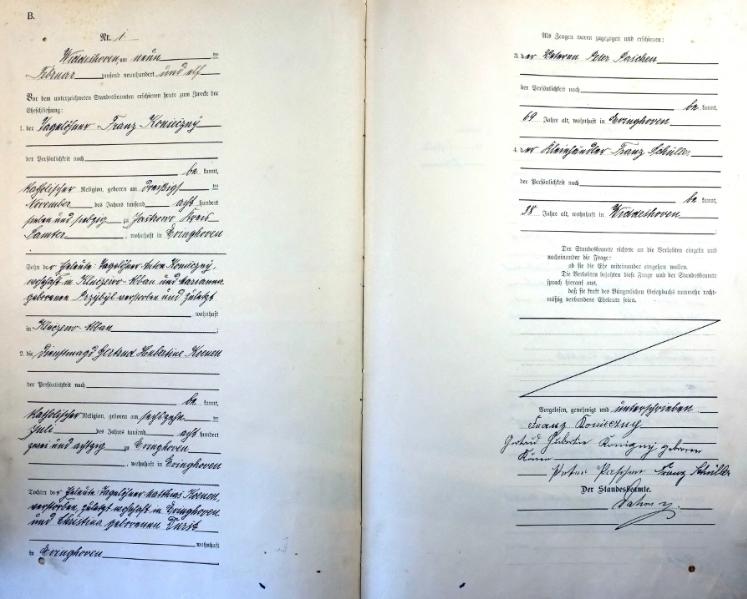 B.
Nr. 1
Widdeshoven am neun ten
Februar tausend neunhundert und elf
Vor dem unterzeichneten Standesbeamten erschienen heute zum Zweck der
Eheschließung:
1. der Tagelöhner Franz Konieczny
der Persönlichkeit nach
be kannt,
katholischer Religion, geboren am dreißigsten
November des Jahres tausend acht hundert
sieben und siebzig zu Kreis
Samter, wohnhaft in Evinghoven
Sohn der Eheleute Tagelöhner Konieczny,
wohnhaft in und
geborenen verstorben und zuletzt
wohnhaft
in
2. die Dienstmagd Gertrud Hubertine Koenen
der Persönlichkeit nach
be kannt,
katholischer Religion, geboren am sechszehn ten
Juli des Jahres tausend acht hundert
zwei und achtzig zu Evinghoven
, wohnhaft in Evinghoven
Tochter der Eheleute Tagelöhner Mathias Koenen,
verstorben, zuletzt wohnhaft in Evinghoven
und Christina geborenen
wohnhaft
in Evinghoven
Als Zeugen waren zugezogen und erschienen:
3. der Peter Paschen
der Persönlichkeit nach
be kannt,
69 Jahre alt, wohnhaft in Evinghoven
4. der Kleinhändler Franz Schüller
der Persönlichkeit nach
be kannt,
38 Jahre alt, wohnhaft in Widdeshoven
Der Standesbeamte richtete an die Verlobten einzeln und
nacheinander die Frage:
ob sie die Ehe miteinander eingehen wollen.
Die Verlobten bejahten diese Frage und der Standesbeamte
sprach hierauf aus,
daß sie kraft des Bürgerlichen Gesetzbuchs nunmehr recht-
mäßig verbundene Eheleute seien.
Vorgelesen, genehmigt und unterschrieben
Franz Konieczny
Gertrud Hubertine geborene
Koenen
Peter Paschen Franz Schüller
Der Standesbeamte.